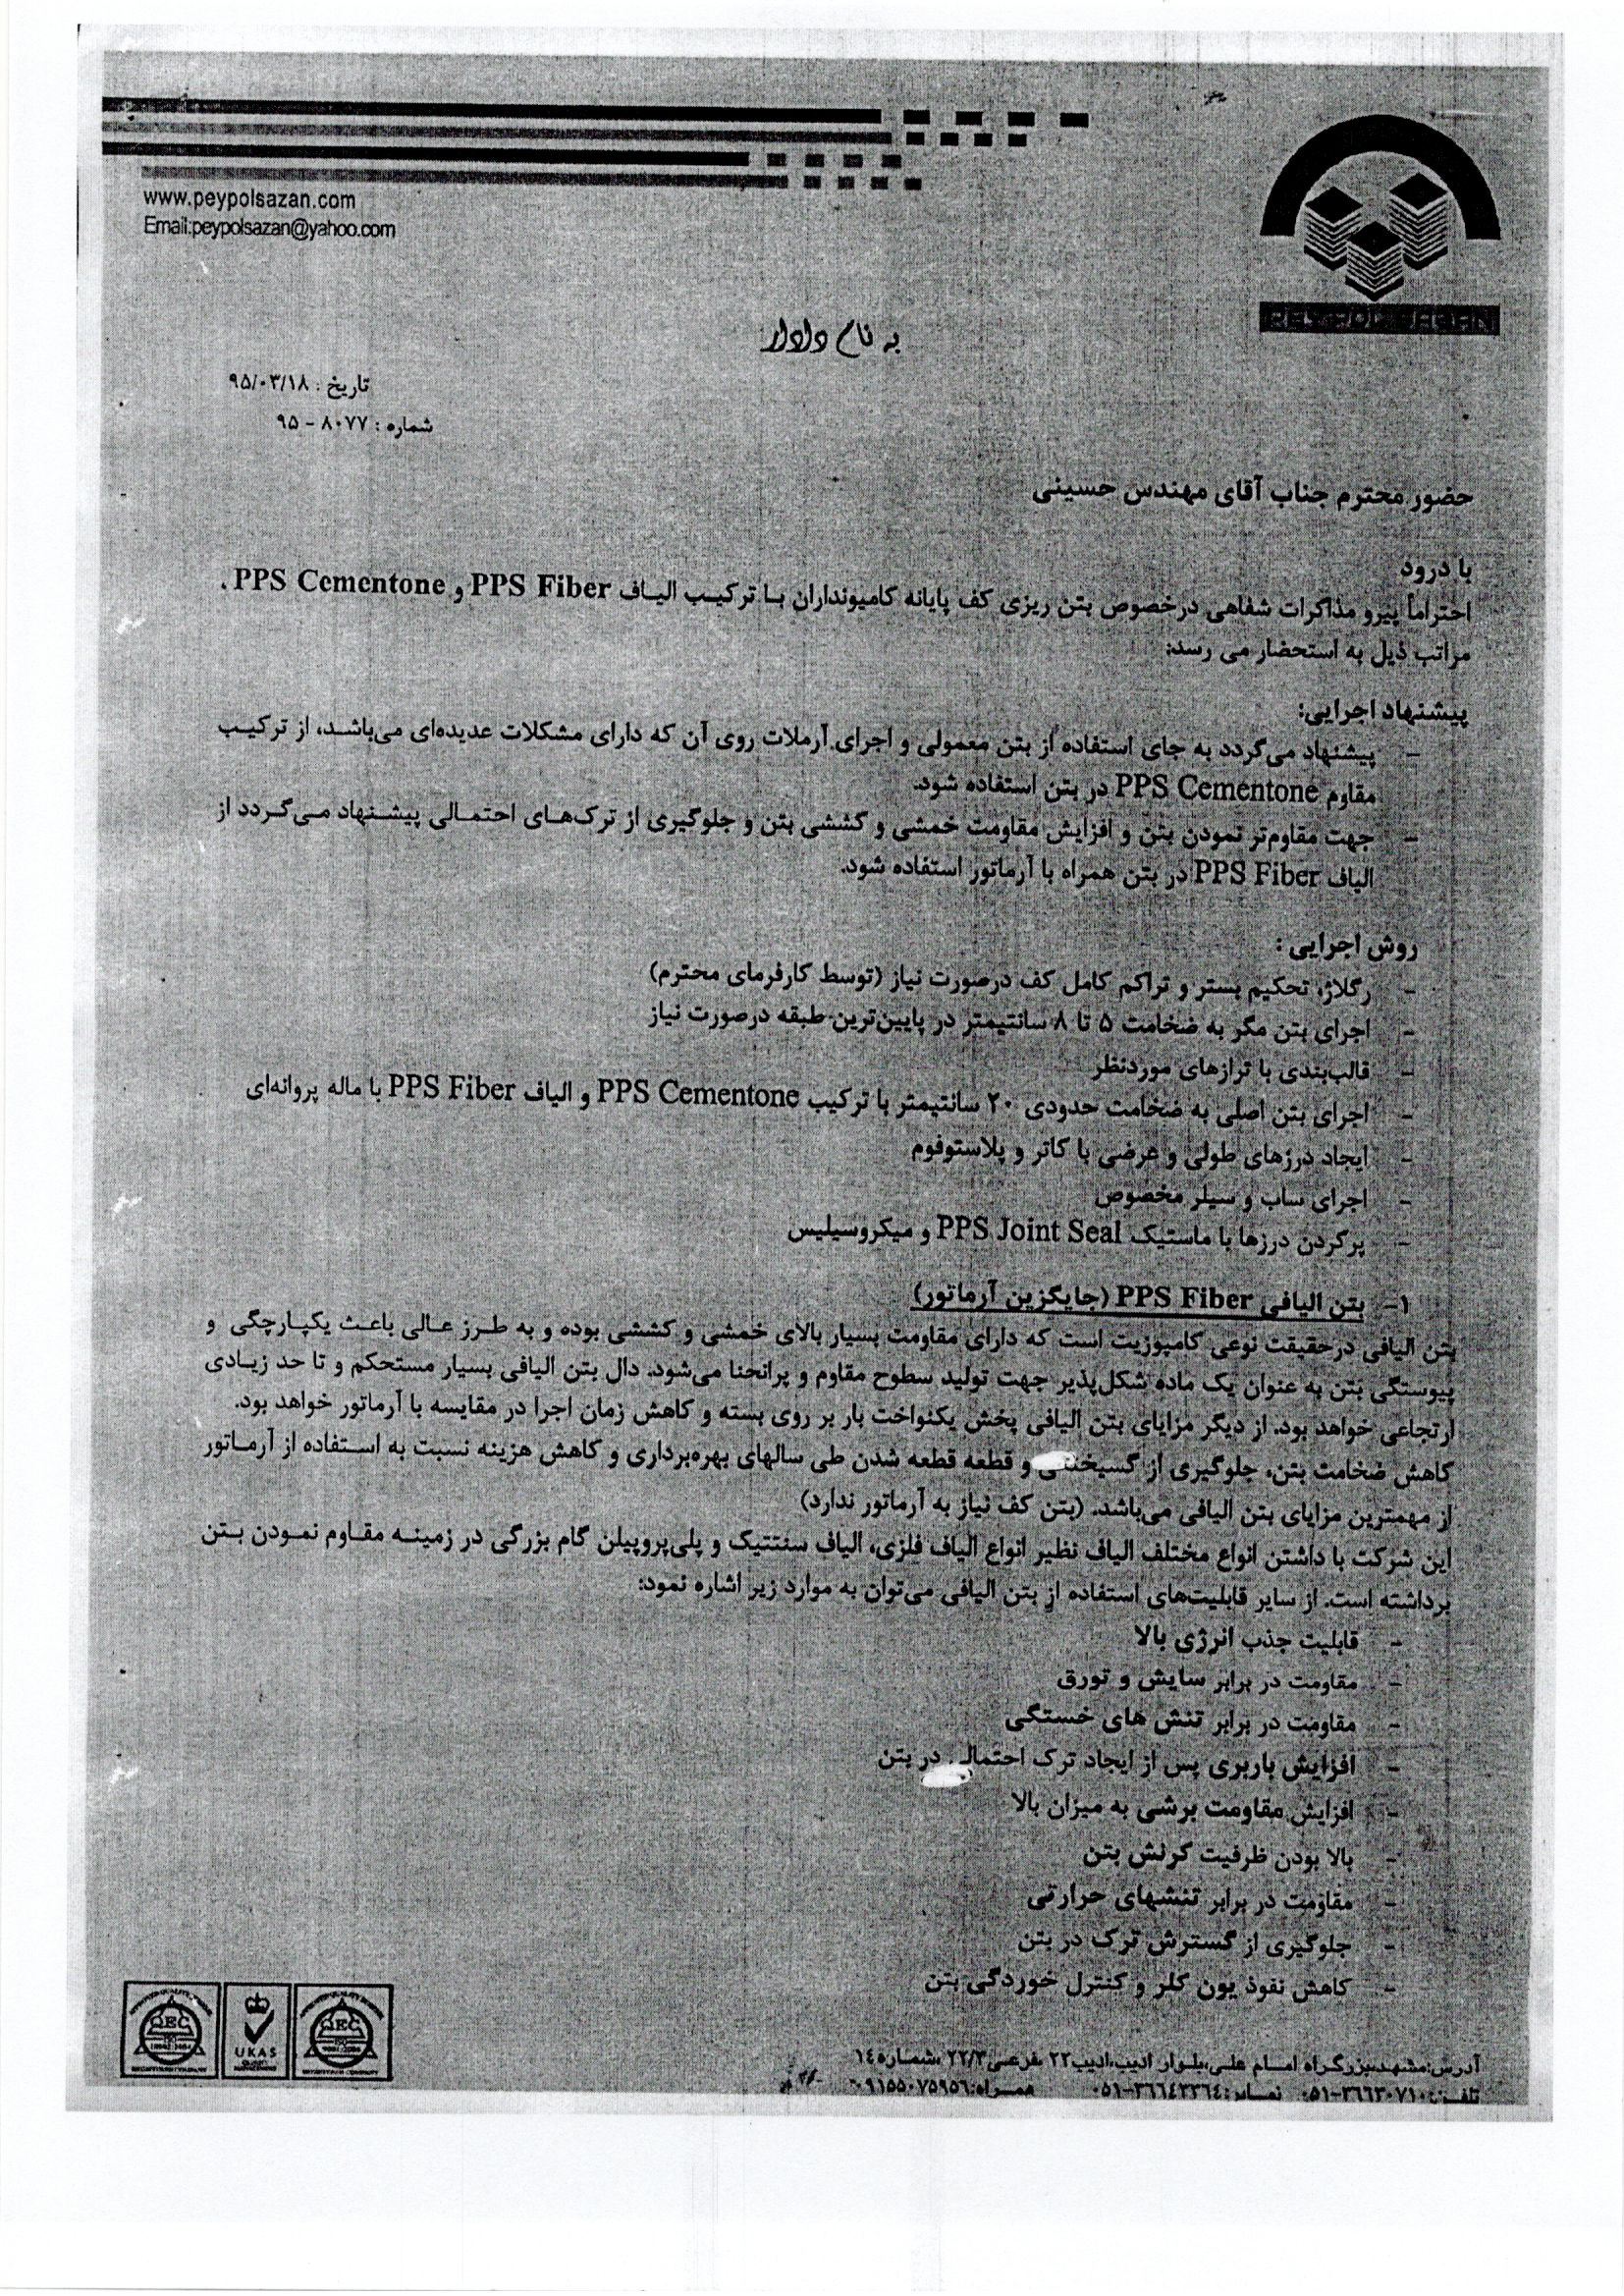 www.peypolsazan.com
Email:peypolsazan@yahoo.com
PEY POL SAZAN
به نام دادار
تاریخ : ۹۵/۰۳/۱۸
شماره : ۸۰۷۷ - ۹۵
حضور محترم جناب آقای مهندس حسینی
با درود
احتراماً پیرو مذاکرات شفاهی درخصوص بتن ریزی کف پایانه کامیونداران با ترکیب الیاف PPS Fiber و PPS Cementone ،
مراتب ذیل به استحضار می رسد:
پیشنهاد اجرایی:
- پیشنهاد می‌گردد به جای استفاده از بتن معمولی و اجرای آرملات روی آن که دارای مشکلات عدیده‌ای می‌باشد، از ترکیب
مقاوم PPS Cementone در بتن استفاده شود.
- جهت مقاوم‌تر نمودن بتن و افزایش مقاومت خمشی و کششی بتن و جلوگیری از ترک‌های احتمالی پیشنهاد می‌گردد از
الیاف PPS Fiber در بتن همراه با آرماتور استفاده شود.
روش اجرایی :
- رگلاژ، تحکیم بستر و تراکم کامل کف درصورت نیاز (توسط کارفرمای محترم)
- اجرای بتن مگر به ضخامت ۵ تا ۸ سانتیمتر در پایین‌ترین طبقه درصورت نیاز
- قالب‌بندی با ترازهای موردنظر
- اجرای بتن اصلی به ضخامت حدودی ۲۰ سانتیمتر با ترکیب PPS Cementone و الیاف PPS Fiber با ماله پروانه‌ای
- ایجاد درزهای طولی و عرضی با کاتر و پلاستوفوم
- اجرای ساب و سیلر مخصوص
- پرکردن درزها با ماستیک PPS Joint Seal و میکروسیلیس
۱- بتن الیافی PPS Fiber (جایگزین آرماتور)
بتن الیافی درحقیقت نوعی کامپوزیت است که دارای مقاومت بسیار بالای خمشی و کششی بوده و به طرز عالی باعث یکپارچگی و
پیوستگی بتن به عنوان یک ماده شکل‌پذیر جهت تولید سطوح مقاوم و پرانحنا می‌شود. دال بتن الیافی بسیار مستحکم و تا حد زیادی
ارتجاعی خواهد بود. از دیگر مزایای بتن الیافی پخش یکنواخت بار بر روی بسته و کاهش زمان اجرا در مقایسه با آرماتور خواهد بود.
کاهش ضخامت بتن، جلوگیری از گسیختگی و قطعه قطعه شدن طی سالهای بهره‌برداری و کاهش هزینه نسبت به استفاده از آرماتور
از مهمترین مزایای بتن الیافی می‌باشد. (بتن کف نیاز به آرماتور ندارد)
این شرکت با داشتن انواع مختلف الیاف نظیر انواع الیاف فلزی، الیاف سنتتیک و پلی‌پروپیلن گام بزرگی در زمینه مقاوم نمودن بتن
برداشته است. از سایر قابلیت‌های استفاده از بتن الیافی می‌توان به موارد زیر اشاره نمود:
- قابلیت جذب انرژی بالا
- مقاومت در برابر سایش و تورق
- مقاومت در برابر تنش های خستگی
- افزایش باربری پس از ایجاد ترک احتمالی در بتن
- افزایش مقاومت برشی به میزان بالا
- بالا بودن ظرفیت کرنش بتن
- مقاومت در برابر تنشهای حرارتی
- جلوگیری از گسترش ترک در بتن
- کاهش نفوذ یون کلر و کنترل خوردگی بتن
QEC
UKAS
QEC
آدرس:مشهد،بزرگراه امام علی،بلوار ادیب،ادیب۲۲ ،فرعی۲۲/۳ ،شماره۱٤
تلفن:۳٦٦۳۰۷۱۰-۰۵۱ نمابر:۳٦٦٤۲۳٦٤-۰۵۱ همراه:۰۹۱۵۵۰۷۵۹۵٦